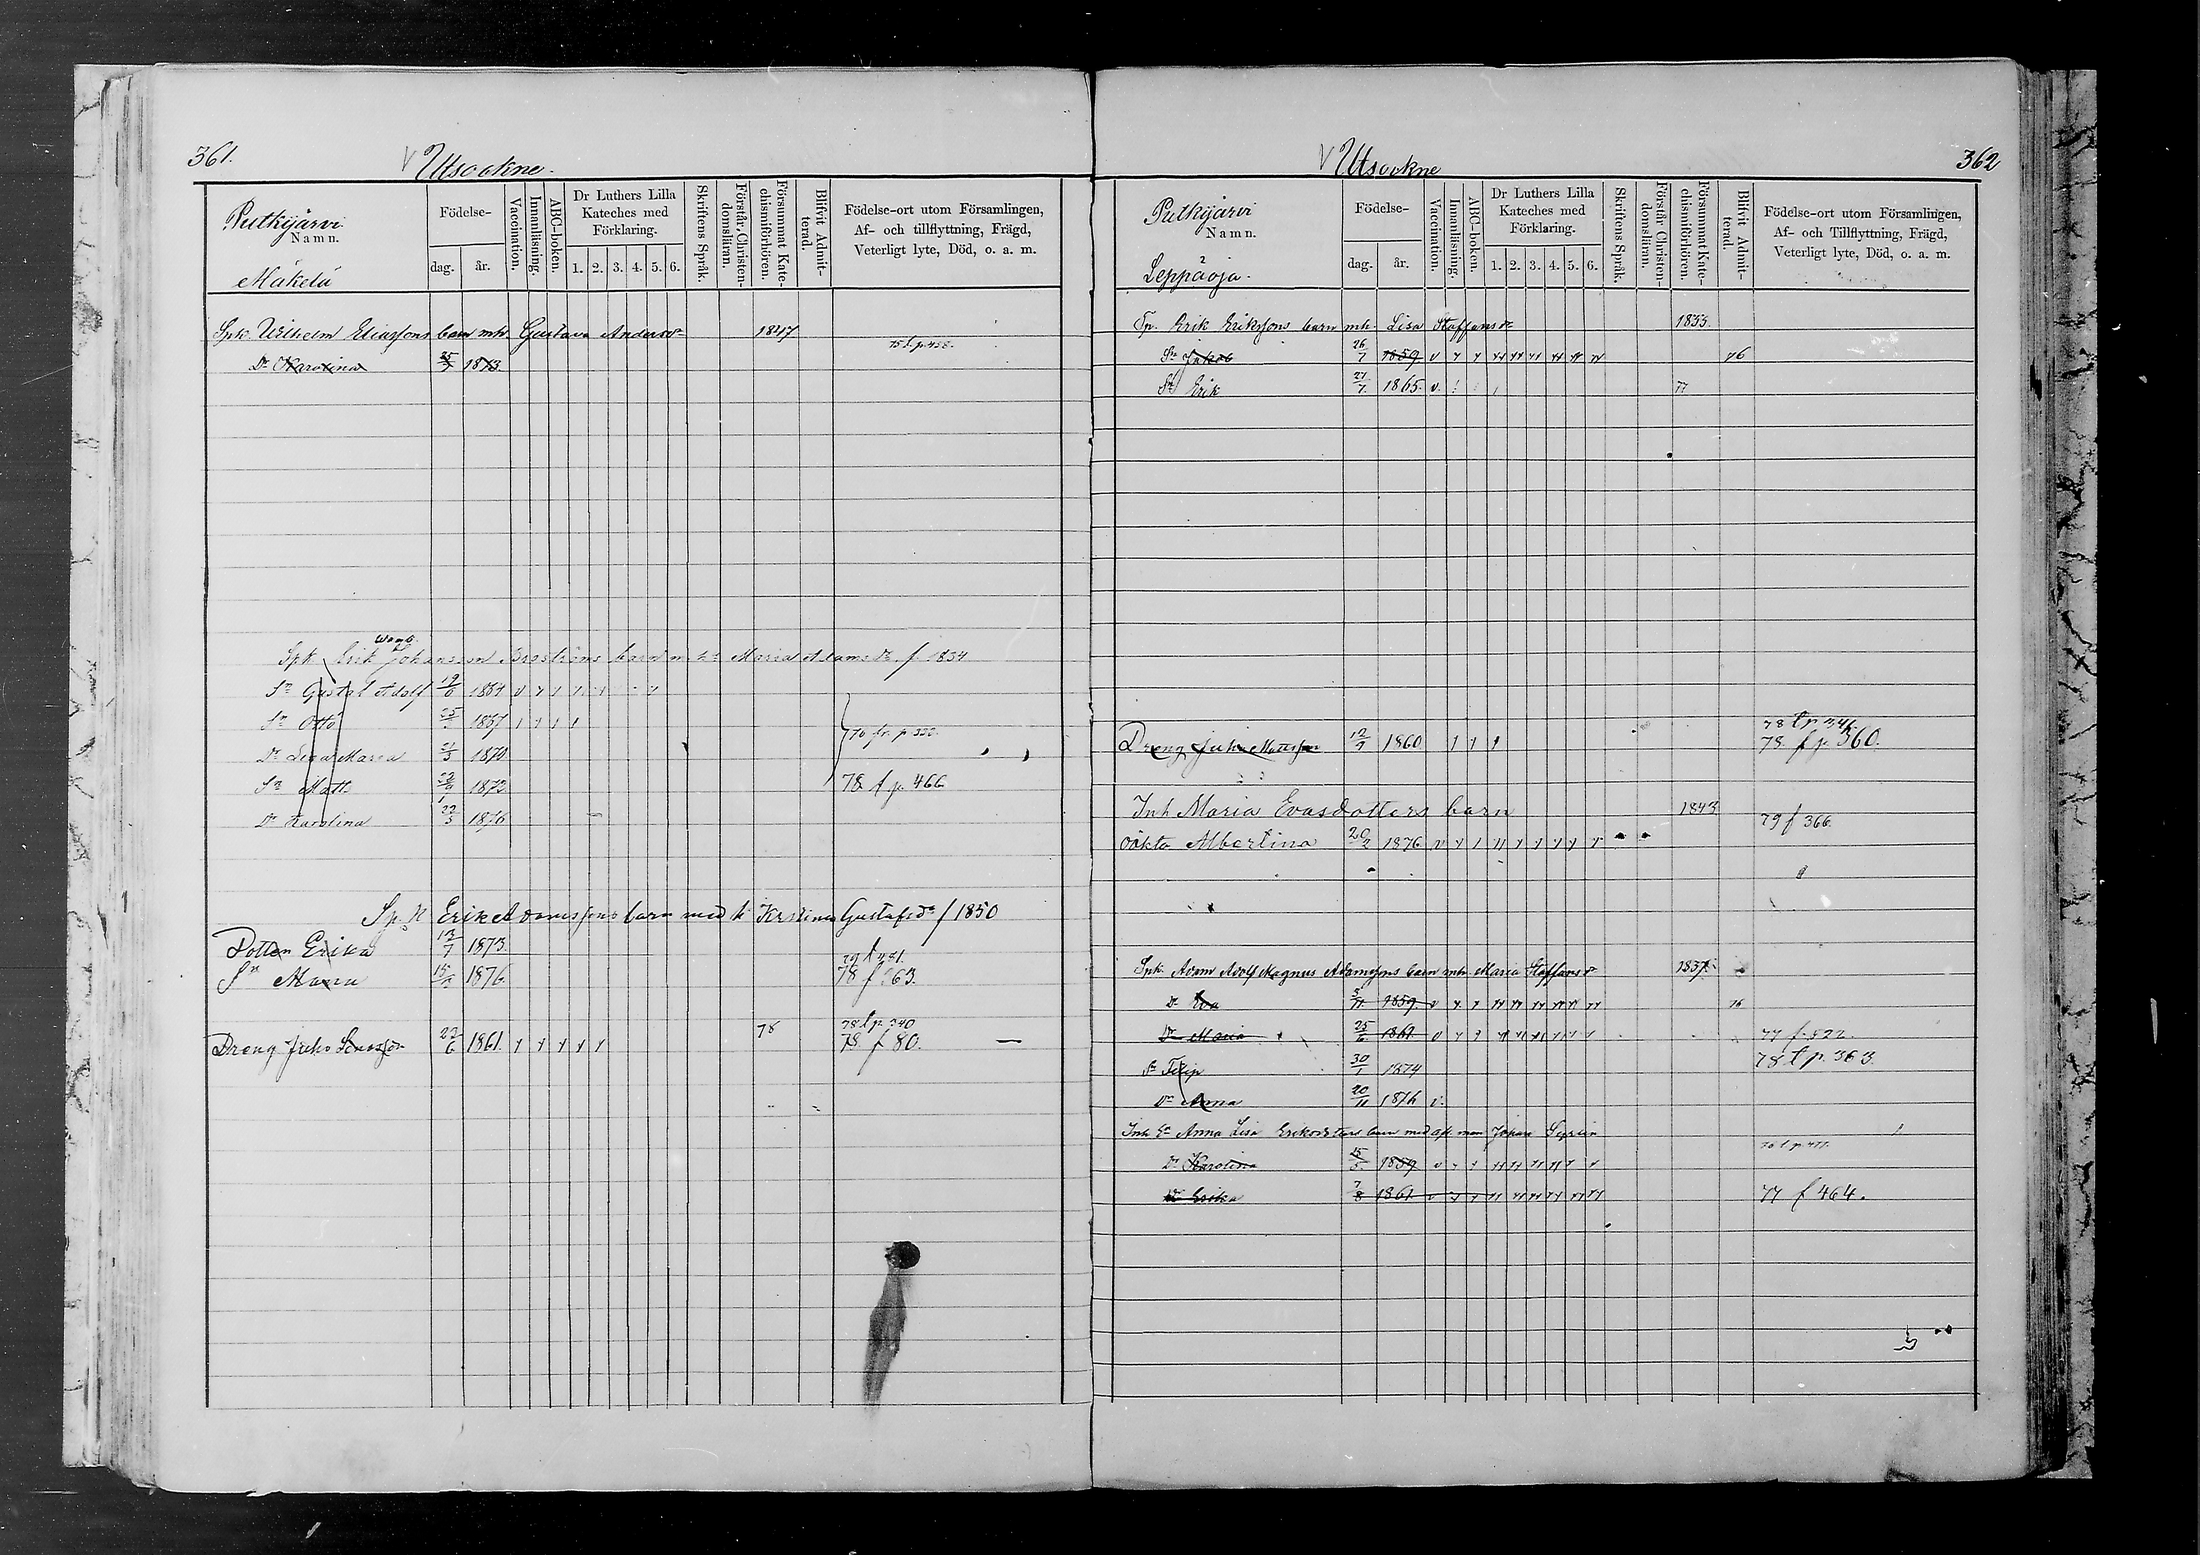 361.
Utsockne.
Putkijärvi
Namn.
Mäkelä
Födelse-
dag.
år.
Vaccination.
Innanläsning.
ABC-boken.
Dr Luthers Lilla Kateches med Förklaring.
1. 2. 3. 4. 5. 6.
Skriftens Språk.
Förstår Christendomsläran.
Försummat Katechismiförhören.
Blifvit Admitterad.
Födelse-ort utom Församlingen,
Af- och tillflyttning, Frägd,
Veterligt lyte, Död, o. a. m.
Spk. Wilhelm Eliassons barn mh. Gustava Andersdr 1847
Dr Karolina 25/5 1873
75 t. p. 458.
Spk Erik Johansson Broströms barn m. h. Maria Adamsdr. f. 1834
Sn Gustaf Adolf 19/6 1864
Sn Otto 1867
76 fr. p. 332.
Dr Lisa Maria 1870
Sn Matts 1872
78 f p. 466
Dr Karolina 22/3 1876
Sp. H Erik Adamssons barn med h Kristina Gustafsdr f 1850
Dotter Erika 13/7 1873.
Dr Maria 1876.
78 f 363.
Dreng Juho 22/6 1861. 78
78 t p. 340
78 f 80.
362
Utsockne
Putkijärvi
Namn.
Leppäoja.
Födelse-
dag.
år.
Vaccination.
Innanläsning.
ABC-boken.
Dr Luthers Lilla Kateches med Förklaring.
1. 2. 3. 4. 5. 6.
Skriftens Språk.
Förstår Christendomsläran.
Försummat Katechismiförhören.
Blifvit Admitterad.
Födelse-ort utom Församlingen,
Af- och Tillflyttning, Frägd,
Veterligt lyte, Död, o. a. m.
Tp. Erik Erikssons barn mh. Lisa Staffansdr 1833.
Sn Jakob 26/7 1859 76
Sn Erik 21/7 1865. 77
78 t p 346
Dreng Juho Mattsson 12/9 1860 78. f p. 360.
Inh Maria Evasdotters barn 1843
79 f 366.
oäkta Albertina 20/2 1876
Spk. Adam Adolf Magnus Adamssons barn mh. Maria Staffansdr 1837.
Dr Eva 5/11 1859 76
Dr Maria 25/6 1861 77 f. 522.
78 t p. 363.
Sn Filip 30/1 1874
Dr Anna 20/11 1876
Inh Ea Anna Lisa Eriksdotters barn med afl. man Johan
76 t. p. 477.
Dr Karolina 1859
Dr Erika 7/8 1861 77 f 464.